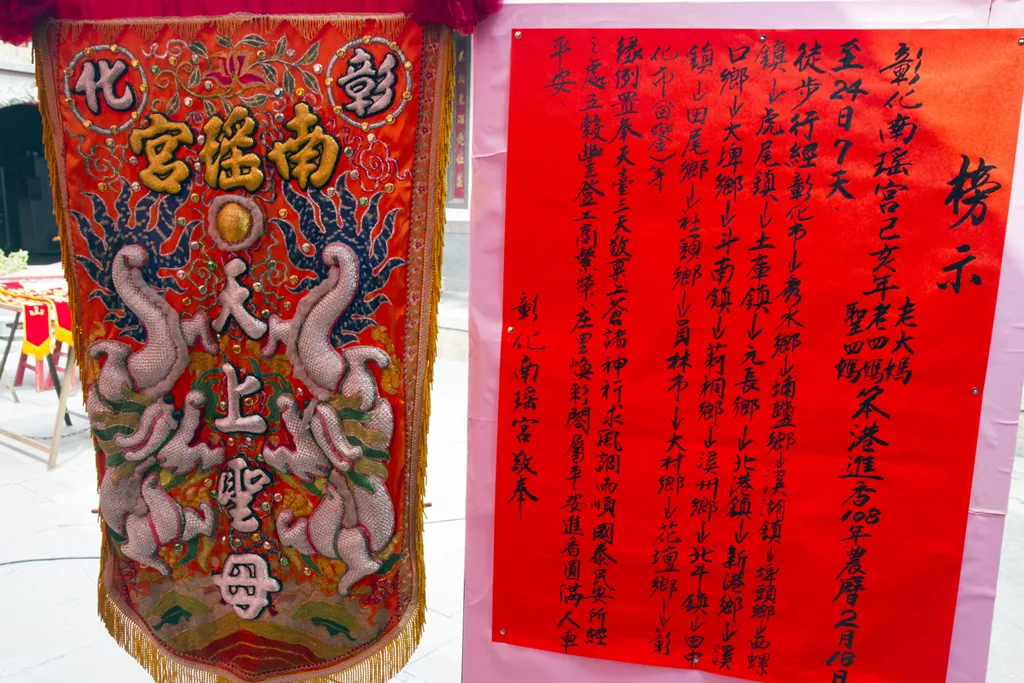 彰化
南瑤宮
天上聖母
榜示
彰化南瑤宮己亥年老大媽 老四媽 聖四媽笨港進香108年農曆2月18日
至24日7天
徒步行經彰化市→秀水鄉→埔鹽鄉→溪湖鎮→埤頭鄉→西螺
鎮→虎尾鎮→土庫鎮→元長鄉→北港鎮→新港鄉→溪
口鄉→大埤鄉→斗南鎮→莿桐鄉→溪州鄉→北斗鎮→田中
鎮→田尾鄉→社頭鄉→員林市→大村鄉→花壇鄉→彰
化市(回鑾)等
緣例置奉天臺三天敬事上蒼諸神祈求風調雨順國泰民安所經
之處五穀豐登工商繁榮、庄里煥彩閤屬平安進香圓滿人車
平安
彰化南瑤宮敬奉
山